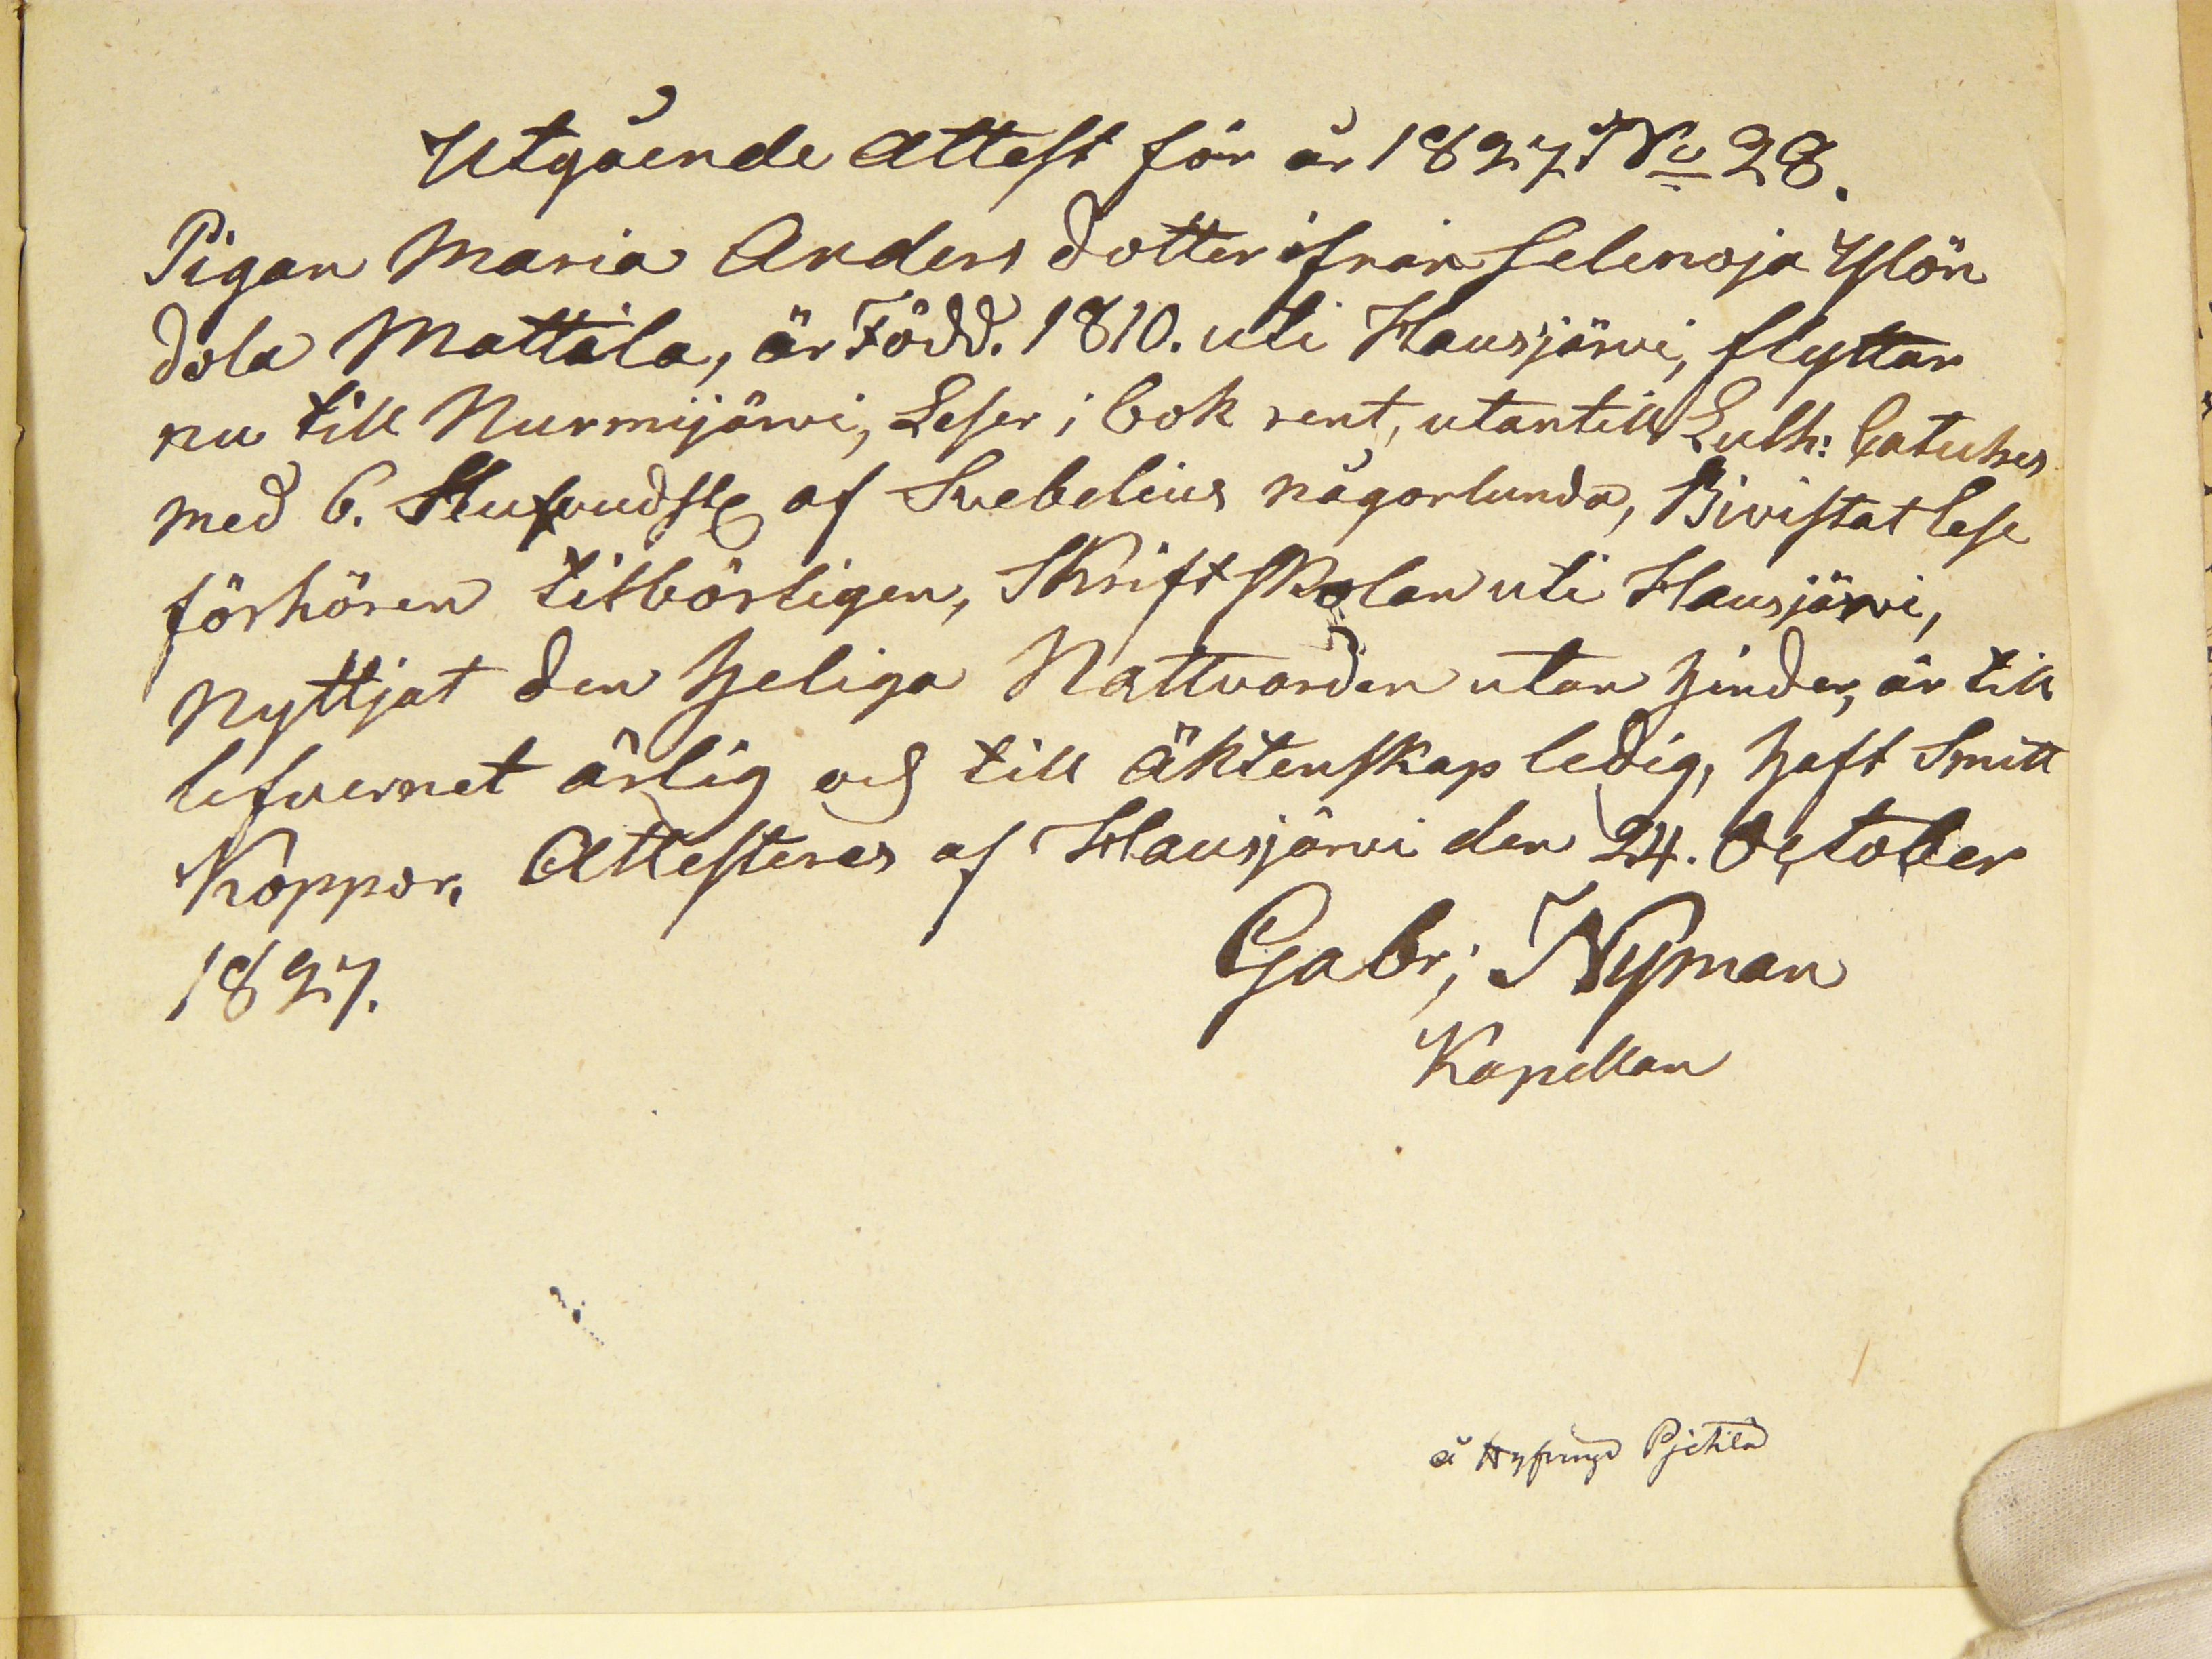 Utgående Attest för år 1827 No 28.
Pigan Maria Anders dotter ifrån Selenoja Ylön
dola Mattila, är Född. 1810. uti Hausjärvi, flyttar
nu till Nurmijärvi, Leser i bok rent, utantill Luth: Catuhes
med 6. Hufvudst af Svebelius någorlunda, Bivistat lese
förhören tilbörligen, Skriftskolan uti Hausjärvi,
Nyttjat den heliga Nattvarden utan hinder, är till
lefvernet ärlig och till äktenskap ledig, haft Smitt
Koppor. Attesteres af Hausjärvi den 24. October
1827.
Gabr; Nyman
Kapellan
å Pjetilä